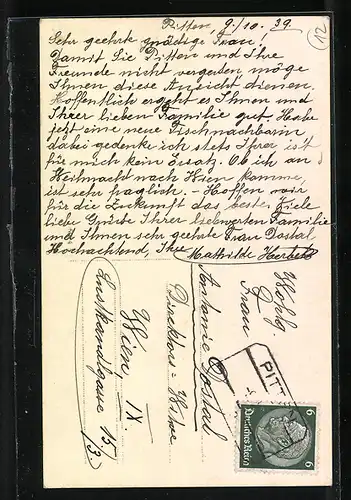 Pitten, 9./10. 39.
Sehr geehrte gnädige Frau!
Damit Sie Pitten und Ihre
Freunde nicht vergessen möge
Ihnen diese Ansicht dienen.
Hoffentlich ergeht es Ihnen und
Ihrer lieben Familie gut. Habe
jetzt eine neue Tischnachbarin
dabei gedenke ich stets Ihrer ist
für mich kein Ersatz. Ob ich an
Weihnacht nach Wien komme,
ist sehr fraglich. – Hoffen wir
für die Zukunft das beste. Viele
liebe Grüße Ihrer liebwerten Familie
und Ihnen sehr geehrte Frau Dostal.
Hochachtend, Ihre
Mathilde Herbelß
Wohlg.
Frau
Antonie Dostal
Direktors-Witwe
Wien, IX.
Lustkandlgasse 15
/3
PITT
6
Deutsches Reich
6